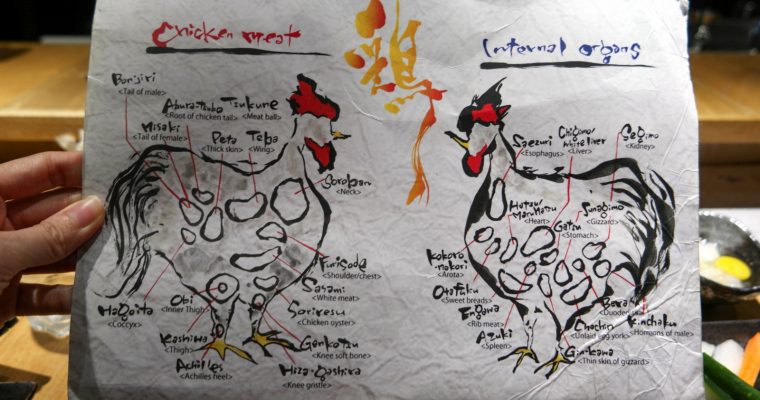 Chicken meat
鶏
Internal organs
Bonjiri
<Tail of male>
Abura-tsubo
<Root of chicken tail>
Tsukune
<Meat ball>
Misaki
<Tail of female>
Peta
<Thick skin>
Teba
<Wing>
Soroban
<Neck>
Furisode
<Shoulder/chest>
Sasami
<White meat>
Soriresu
<Chicken oyster>
Genkotsu
<Knee soft bone>
Hiza-gashira
<Knee gristle>
Hagoita
<Coccyx>
Obi
<Inner Thigh>
Kashiwa
<Thigh>
Achilles
<Achilles heel>
Saezuri
<Esophagus>
Chigimo/
White liver
<Liver>
Segimo
<Kidney>
Hatsu/
Maruhatsu
<Heart>
Gatsu
<Stomach>
Sunagimo
<Gizzard>
Kokoro
-nokori
<Arota>
Otafuku
<Sweet breads>
Engawa
<Rib meat>
Azuki
<Spleen>
Kinchaku
<Homaons of male>
Chochin
<Unlaid egg york>
Gin-kawa
<Thin skin of gizzard>